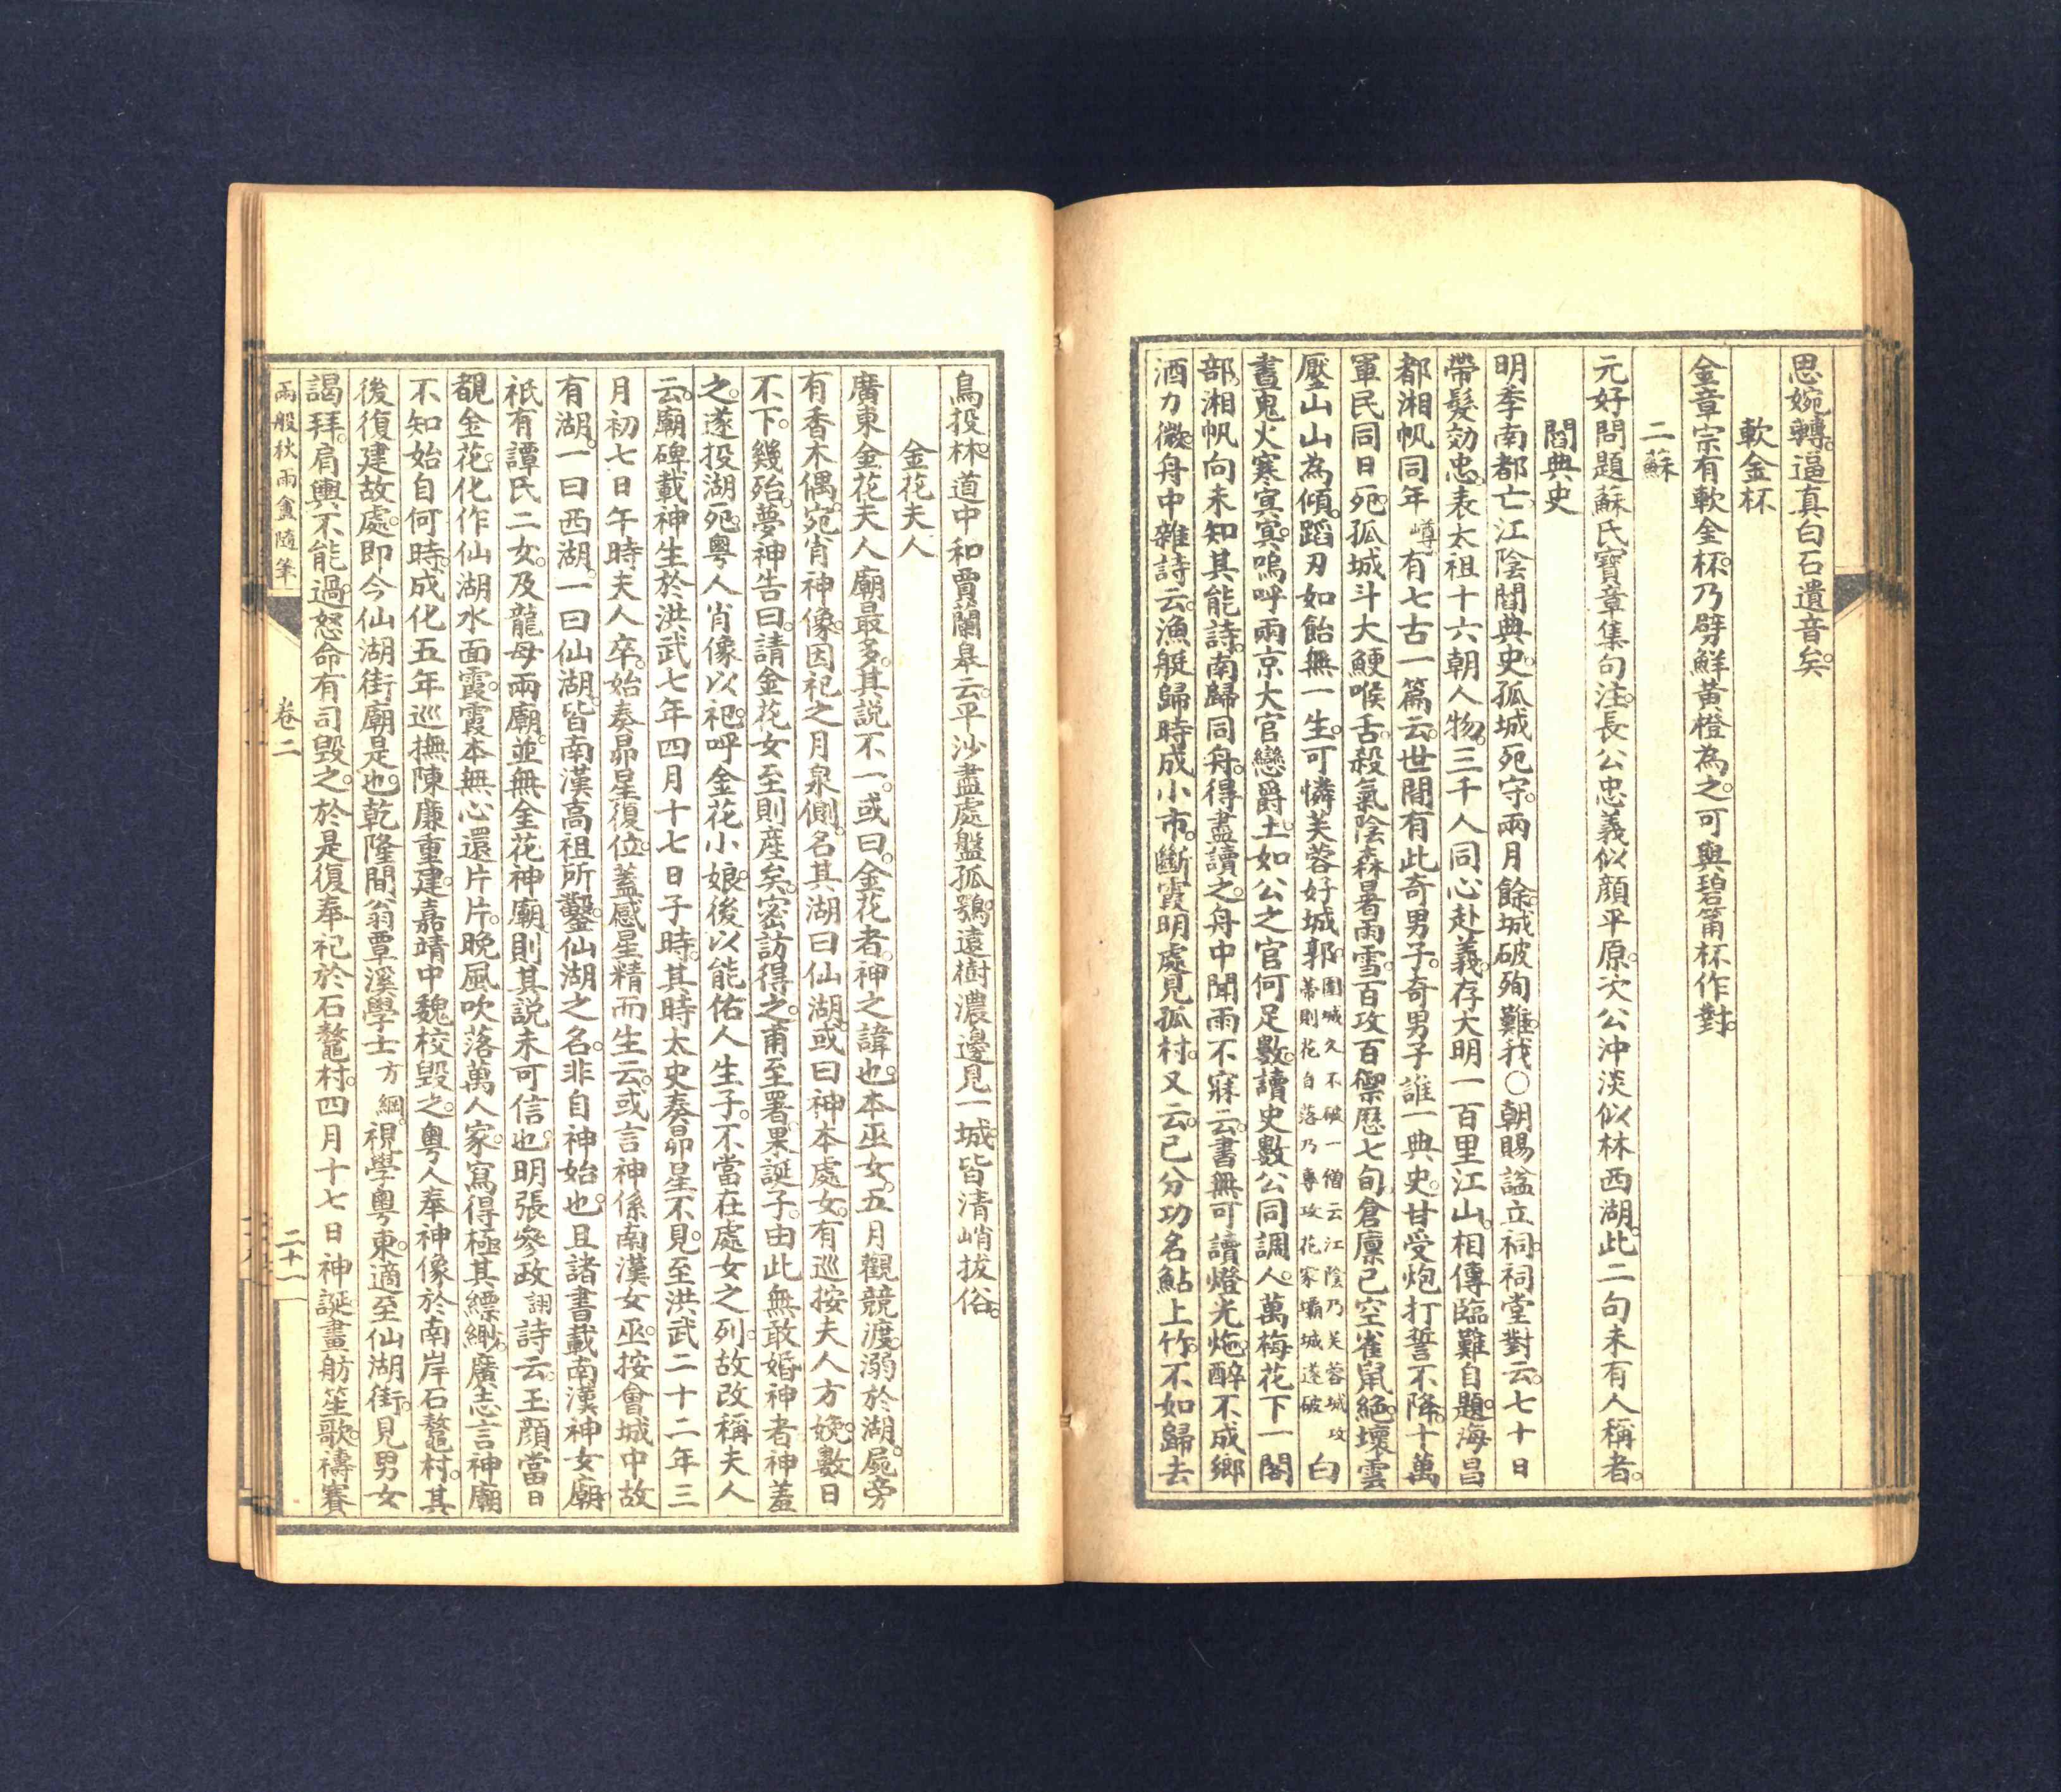 思婉轉。逼真白石遺音矣。
軟金杯
金章宗有軟金杯。乃劈鮮黃橙為之。可與碧筩杯作對。
二蘇
元好問題蘇氏寶章集句注。長公忠義似顏平原。次公沖淡似林西湖。此二句未有人稱者。
閻典史
明季南都亡。江陰閻典史。孤城死守。兩月餘。城破殉難。我〇朝賜諡立祠。祠堂對云。七十日
帶髮効忠。表太祖十六朝人物。三千人同心赴義。存大明一百里江山。相傳臨難自題。海昌
都湘帆同年嶟有七古一篇云。世間有此奇男子。奇男子誰一典史。甘受炮打誓不降。十萬
軍民同日死。孤城斗大鯁喉舌。殺氣陰森暑雨雪。百攻百禦歷七旬。倉廩已空雀鼠絕。壞雲
壓山山為傾。蹈刃如飴無一生。可憐芙蓉好城郭。圍城久不破一僧云江陰乃芙蓉城攻蒂則花自落乃專攻花家壩城遂破白
晝鬼火寒冥冥。嗚呼兩京大官戀爵土。如公之官何足數。讀史數公同調人。萬梅花下一閣
部。湘帆向未知其能詩。南歸同舟。得盡讀之。舟中聞雨不寐云。書無可讀燈光炧。醉不成鄉
酒力微。舟中雜詩云。漁艇歸時成小市。斷霞明處見孤村。又云。已分功名鮎上竹。不如歸去
鳥投林。道中和賈蘭皋云。平沙盡處盤孤鶚。遠樹濃邊見一城。皆清峭拔俗。
金花夫人
廣東金花夫人廟最多。其說不一。或曰。金花者。神之諱也。本巫女。五月觀競渡。溺於湖。屍旁
有香木偶。宛肖神像。因祀之月泉側。名其湖曰仙湖。或曰神本處女。有巡按夫人方娩。數日
不下。幾殆。夢神告曰。請金花女至則產矣。密訪得之。甫至署。果誕子。由此無敢婚神者。神羞
之。遂投湖死。粵人肖像以祀。呼金花小娘。後以能佑人生子。不當在處女之列。故改稱夫人
云。廟碑載神生於洪武七年四月十七日子時。其時太史奏昴星不見。至洪武二十二年三
月初七日午時夫人卒。始奏昴星復位。蓋感星精而生云。或言神係南漢女巫。按會城中故
有湖。一曰西湖。一曰仙湖。皆南漢高祖所鑿。仙湖之名。非自神始也。且諸書載南漢神女廟。
祇有譚氏二女。及龍母兩廟。並無金花神廟。則其說未可信也。明張參政詡詩云。玉顏當日
覩金花。化作仙湖水面霞。霞本無心還片片。晚風吹落萬人家。寫得極其縹緲。廣志言神廟
不知始自何時。成化五年。巡撫陳廉重建。嘉靖中魏校毀之。粵人奉神像於南岸石鼇村。其
後復建故處。即今仙湖街廟是也。乾隆間翁覃溪學士方綱。視學粵東。適至仙湖街。見男女
謁拜。肩輿不能過。怒命有司毀之。於是復奉祀於石鼇村。四月十七日神誕。畫舫笙歌。禱賽
兩般秋雨盦隨筆 卷二 二十一